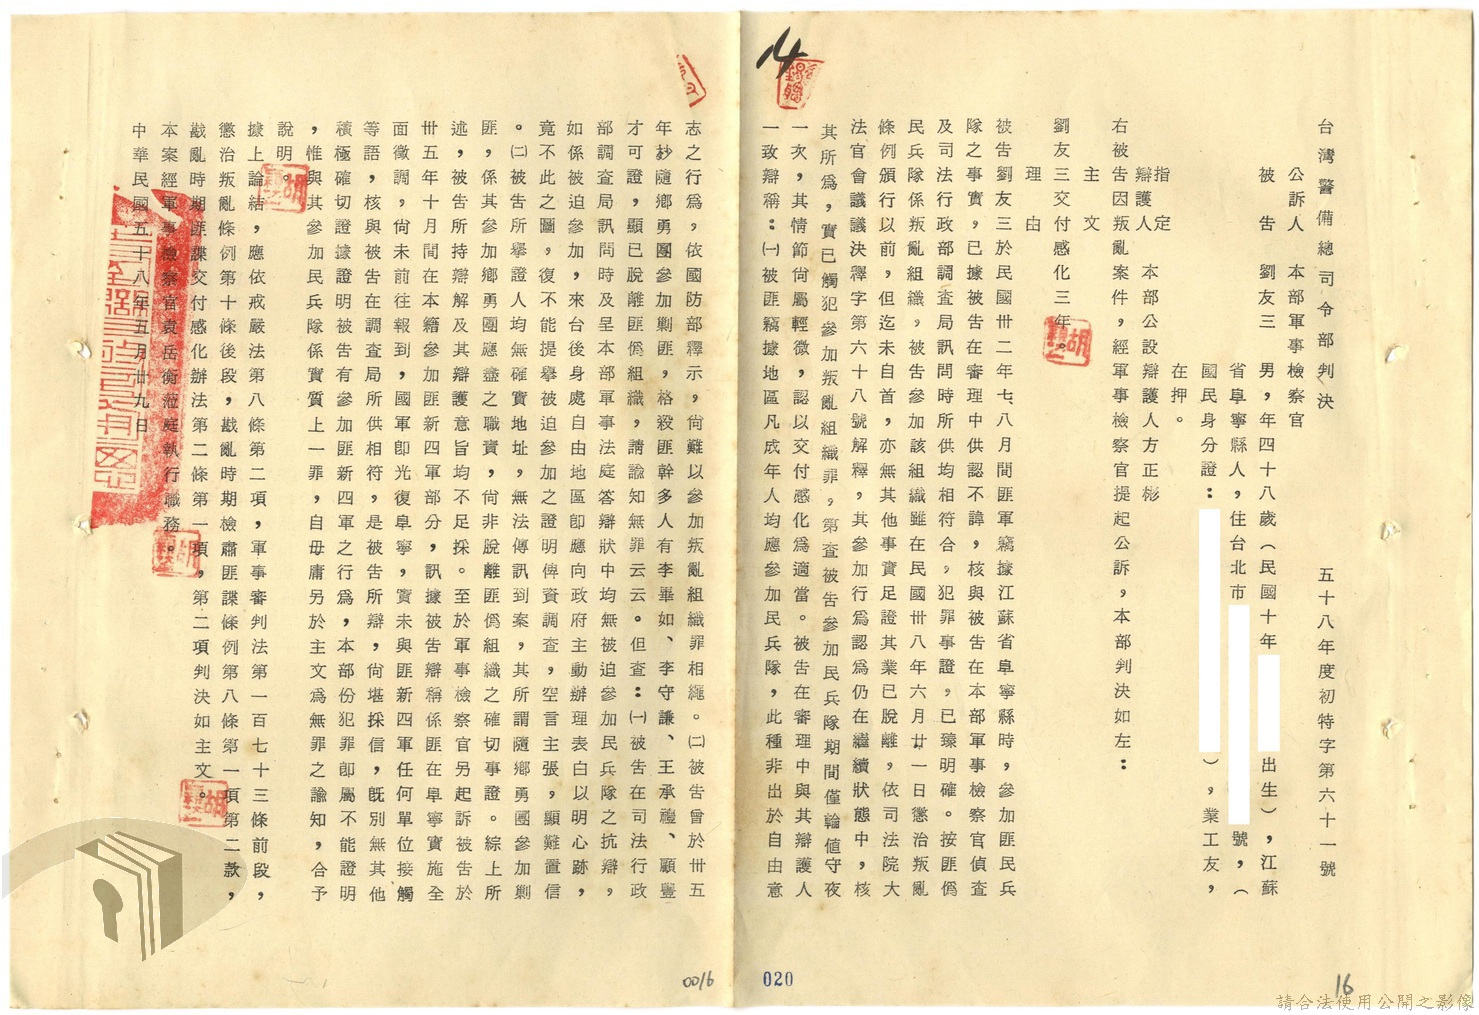 14
台灣警備總司令部判決　五十八年度初特字第六十一號
公訴人　本部軍事檢察官
被告　劉友三　男，年四十八歲（民國十年　出生），江蘇
省阜寧縣人，住台北市　號，（
國民身分證：　），業工友，
在押。
指定
辯護人　本部公設辯護人方正彬
右被告因叛亂案件，經軍事檢察官提起公訴，本部判決如左：
主文
劉友三交付感化三年。
理由
被告劉友三於民國卅二年七、八月間匪軍竊據江蘇省阜寧縣時，參加匪民兵
隊之事實，已據被告在審理中供認不諱，核與被告在本部軍事檢察官偵查
及司法行政部調查局訊問時所供均相符合，犯罪事證，已臻明確。按匪偽
民兵隊係叛亂組織，被告參加該組織雖在民國卅八年六月廿一日懲治叛亂
條例頒行以前，但迄未自首，亦無其他事實足證其業已脫離，依司法院大
法官會議議決釋字第六十八號解釋，其參加行為認為仍在繼續狀態中，核
其所為，實已觸犯參加叛亂組織罪，第查被告參加民兵隊期間僅輪值守夜
一次，其情節尚屬輕微，認以交付感化為適當。被告在審理中與其辯護人
一致辯稱：㈠被匪竊據地區凡成年人均應參加民兵隊，此種非出於自由意
志之行為，依國防部釋示，尚難以參加叛亂組織罪相繩。㈡被告曾於卅五
年秒隨鄉勇團參加剿匪，格殺匪幹多人有李畢如、李守謙、王承禮、顧豐
才可證，顯已脫離匪偽組織，請諭知無罪云云。但查：㈠被告在司法行政
部調查局訊問時及呈本部軍事法庭答辯狀中均無被迫參加民兵隊之抗辯，
如係被迫參加，來台後身處自由地區即應向政府主動辦理表白以明心跡，
竟不此之圖，復不能提舉被迫參加之證明俾資調查，空言主張，顯難置信
。㈡被告所舉證人均無確實地址，無法傳訊到案，其所謂隨鄉勇團參加剿
匪，係其參加鄉勇團應盡之職責，尚非脫離匪偽組織之確切事證。綜上所
述，被告所持辯解及其辯護意旨均不足採。至於軍事檢察官另起訴被告於
卅五年十月間在本籍參加匪新四軍部分，訊據被告辯稱係匪在阜寧實施全
面徵調，尚未前往報到，國軍即光復阜寧，實未與匪新四軍任何單位接觸
等語，核與被告在調查局所供相符，是被告所辯，尚堪採信，既別無其他
積極確切證據證明被告有參加匪新四軍之行為，本部份犯罪即屬不能證明
，惟與其參加民兵隊係實質上一罪，自毋庸另於主文為無罪之諭知，合予
說明。
據上論結，應依戒嚴法第八條第二項，軍事審判法第一百七十三條前段，
懲治叛亂條例第十條後段，戡亂時期檢肅匪諜條例第八條第一項第二款，
戡亂時期匪諜交付感化辦法第二條第一項，第二項判決如主文。
本案經軍事檢察官袁岳衡蒞庭執行職務。
中華民國五十八年五月廿九日
0016
020
16
請合法使用公開之影像